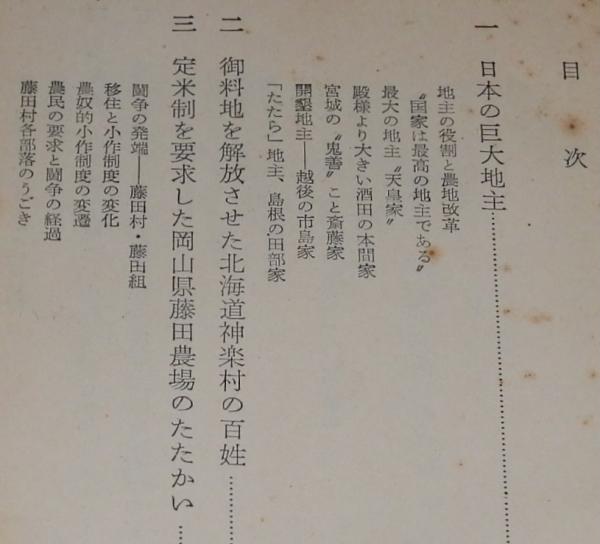 目次
一 日本の巨大地主……………………
地主の役割と農地改革
〝国家は最高の地主である〟
最大の地主〝天皇家〟
殿様より大きい酒田の本間家
宮城の〝鬼善〟こと斎藤家
開墾地主――越後の市島家
「たたら」地主、島根の田部家
二 御料地を解放させた北海道神楽村の百姓…………
三 定米制を要求した岡山県藤田農場のたたかい……
闘争の発端――藤田村・藤田組
移住と小作制度の変化
農奴的小作制度の変遷
農民の要求と闘争の経過
藤田村各部落のうごき